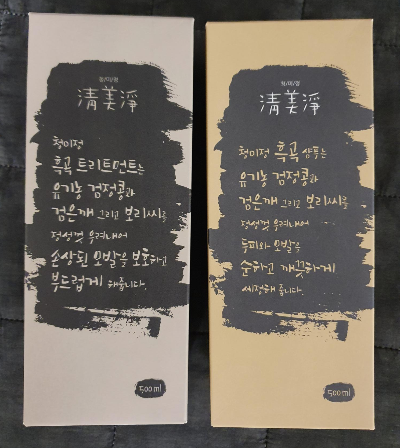 청미정
淸美淨
청미정
흑곡 트리트먼트는
유기농 검정콩과
검은깨 그리고 보리씨를
정성껏 우려내어
손상된 모발을 보호하고
부드럽게 해줍니다.
500ml
청미정
淸美淨
청미정 흑곡 샴푸는
유기농 검정콩과
검은깨 그리고 보리씨를
정성껏 우려내어
두피와 모발을
순하고 깨끗하게
세정해 줍니다.
500ml